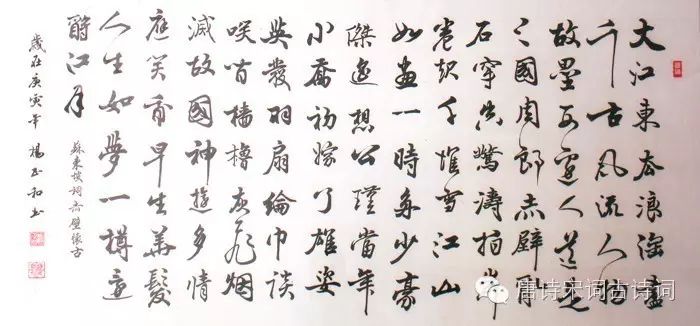 大江東去浪淘盡
千古風流人物
故壘西邊人道是
三國周郎赤壁亂
石穿空驚濤拍岸
卷起千堆雪江山
如畫一時多少豪
傑遥想公瑾當年
小喬初嫁了雄姿
英發羽扇綸巾談
笑間檣櫓灰飛烟
滅故國神遊多情
應笑我早生華髮
人生如夢一樽還
酹江月
蘇東坡詞赤壁懷古
歲在庚寅年楊玉和書
唐诗宋词古诗词